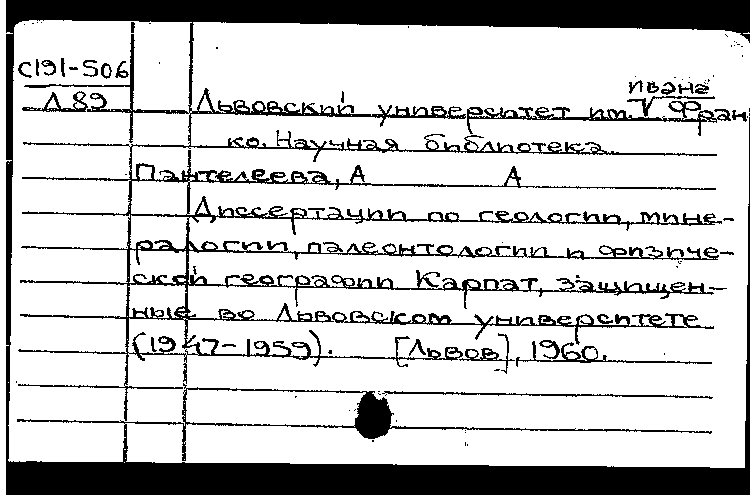 С191-506
Л 89
Львовский университет им. V Фран
Ивана
ко. Научная библиотека
Пантелеева, А А
Диссертации по геологии, мине-
ралогии, палеонтологии и физиче-
ской географии Карпат, защищен-
ные во Львовском университете
(1947-1959). [Львов], 1960.